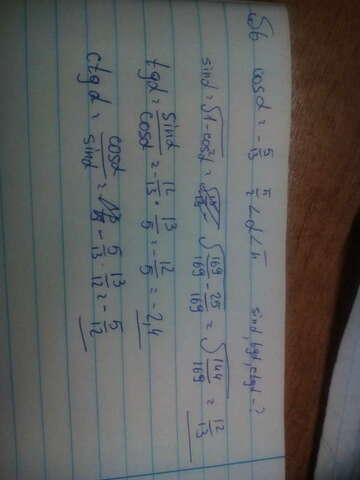 566 cosα = -5/13 π/2 < α < π sinα, tgα, ctgα - ?
sinα = √1-cos²α = √169/169 - 25/169 = √144/169 = 12/13
tgα = sinα/cosα = -12/13 · 13/5 = -12/5 = -2,4
ctgα = cosα/sinα = -5/13 · 13/12 = -5/12